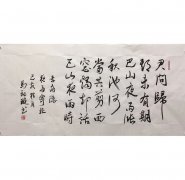 君問歸
期未有期
巴山夜雨漲
秋池何
當共剪西
窗燭却話
巴山夜雨時
李商隱
夜雨寄北
己亥
書